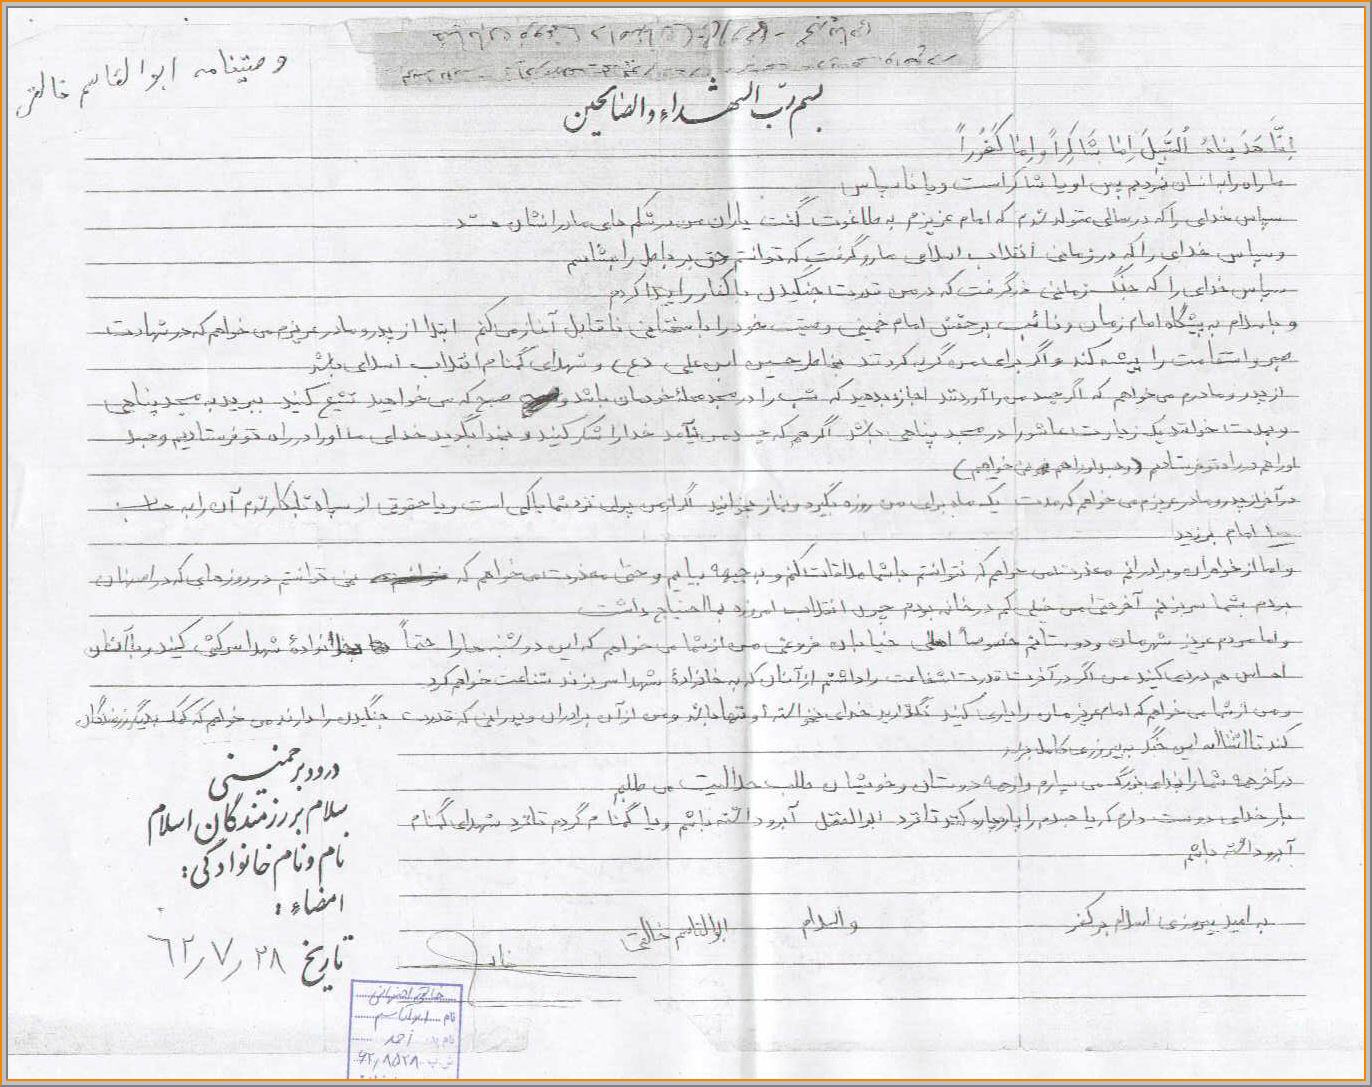 وصیتنامه ابوالقاسم خالقی
بسم ربّ الشهداء و الصالحین
اِنّا هَدَیناهُ السَّبیلَ اِمّا شاکِراً وَ اِمّا کَفُوراً
ما راه را به انسان نمودیم پس او یا شاکر است و یا ناسپاس
سپاس خدای را که در سالی متولد شدم که امام عزیزم به طاغوت گفت یاران من در شکم های مادرانشان هستند
و سپاس خدای را که در زمانی انقلاب اسلامی ما رو گرفت که توانستم حق بر باطل را بشناسم
سپاس خدای را که جنگ زمانی در گرفت که در من قدرت جنگیدن با کفار را پیدا کردم
و با سلام به پیشگاه امام زمان و نائب بر حقش امام خمینی وصیت خود را با سخنانی ناقابل آغاز می کنم ابتدا از پدر و مادر عزیزم می خواهم که در شهادت
صبر و استقامت را پیشه کند و اگر برای من گریه کردند بخاطر حسین ابن علی (ع) و شهدای گمنام انقلاب اسلامی باشد
از پدر و مادرم می خواهم که اگر جسد من را آوردند اجازه بدهید که شب را در مسجد محله خودمان باشد و صبح که می خواهید تشیع کنید ببرید به مسجد پناهی
و بدت خواند یک زیارت عاشورا در مسجد پناهی باشد اگر هم که جسد من نیآمد خدا را شکر کنید و بخدا بگوئید خدای ما او را در راه تو فرستادیم و جسد
او را هم در راه تو فرستادیم (و جسد او را هم نمی خواهیم)
در آخر از پدر و مادر عزیزم می خواهم که مدت یک ماه برای من روزه بگیرد و نماز بخوانید اگر از من پولی نزد شما باکی است و یا حقوقی از سپاه تلبکار شدم آن را به حساب
۱۰۰ امام بریزید
و اما از خواهران و برادرانم معذرت می خواهم که نتوانستم با شما ملاقات کنم و به جبهه بیایم و حتی معذرت می خواهم که نمی توانستم در روزهای که در اصفهان
بودم بشما سر بزنم آخر حتی من خیلی کم در خانه بودم چون انقلاب امروز به ما احتیاج داشت
و اما مردم عزیز شهرمان و دوستانم خصوصاً اهالی خیابان فروغی من از شما می خواهم که این دوشنبه ها را حتماً به خانوادهٔ شهدا سرکشی کنید و با آنان
احساس هم دردی کنید من اگر در آخرت قدرت شفاعت را داشتم از آنان که به خانوادهٔ شهدا سر بزند شفاعت خواهم کرد
و من از شما می خواهم که امام عزیزمان را یاری کنید نگذارید خدای نخواسته او تنها باشد و من از آن برادران و پدرانی که قدرت جنگیدن را دارند می خواهم که کمک به دیگر رزمندگان
کند تا انشاالله این جنگ به پیروزی کامل برسد
در آخر همه شما را بخدای بزرگ می سپارم و از همه دوستان و خویشان طلب حلالیت می طلبم
بار خدای دوست دارم که یا جسدم را پاره پاره کند تا نزد ابوالفضل آبرو داشته باشم و یا گمنام گردم تا نزد شهدای گمنام
آبرو داشته باشم
به امید پیروزی اسلام بر کفر والسلام ابوالقاسم خالقی
درود بر خمینی
سلام بر رزمندگان اسلام
نام و نام خانوادگی:
امضاء:
تاریخ ۶۲/۷/۲۸
نام ابوالقاسم
نام پدر احمد